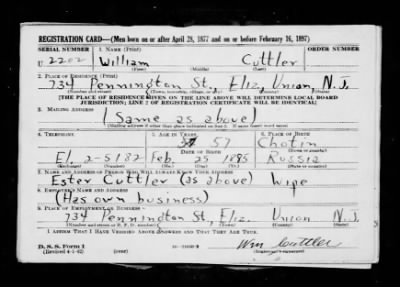 REGISTRATION CARD—(Men born on or after April 28, 1877 and on or before February 16, 1897)
SERIAL NUMBER 1. NAME (Print) ORDER NUMBER
U 2202 William Cuttler
(First) (Middle) (Last)
2. PLACE OF RESIDENCE (Print)
734 Pennington St, Eliz, Union N.J.
(Number and street) (Town, township, village, or city) (County) (State)
[THE PLACE OF RESIDENCE GIVEN ON THE LINE ABOVE WILL DETERMINE LOCAL BOARD
JURISDICTION; LINE 2 OF REGISTRATION CERTIFICATE WILL BE IDENTICAL]
3. MAILING ADDRESS
(Same as above)
[Mailing address if other than place indicated on line 2. If same insert word same]
4. TELEPHONE 5. AGE IN YEARS 6. PLACE OF BIRTH
57 Chotin
DATE OF BIRTH (Town or county)
El 2-5182 Feb. 25 1885 Russia
(Exchange) (Number) (Mo.) (Day) (Yr.) (State or country)
7. NAME AND ADDRESS OF PERSON WHO WILL ALWAYS KNOW YOUR ADDRESS
Ester Cuttler (as above) Wife
8. EMPLOYER'S NAME AND ADDRESS
(Has own business)
9. PLACE OF EMPLOYMENT OR BUSINESS
734 Pennington St, Eliz. Union N.J.
(Number and street or R. F. D. number) (Town) (County) (State)
I AFFIRM THAT I HAVE VERIFIED ABOVE ANSWERS AND THAT THEY ARE TRUE.
D. S. S. Form 1
(Revised 4-1-42) (over) Wm Cuttler